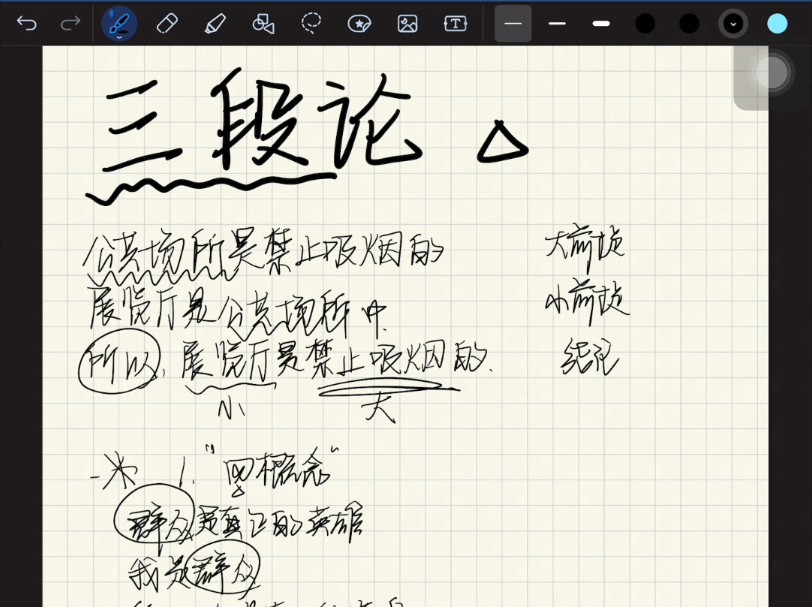 三段论 △
公共场所是禁止吸烟的 大前提
展览厅是公共场所中 小前提
所以, 展览厅是禁止吸烟的. 结论
小 大
1. "四概念"
群众是真正的英雄
我是群众